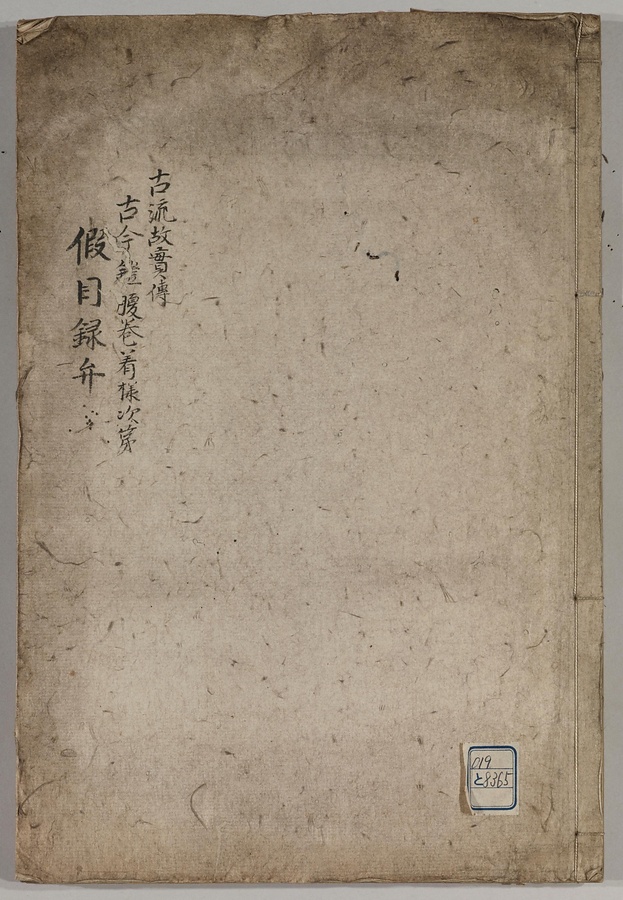 古流故實傳
古今鎧腹巻着様次第
假目録弁
019
と8365